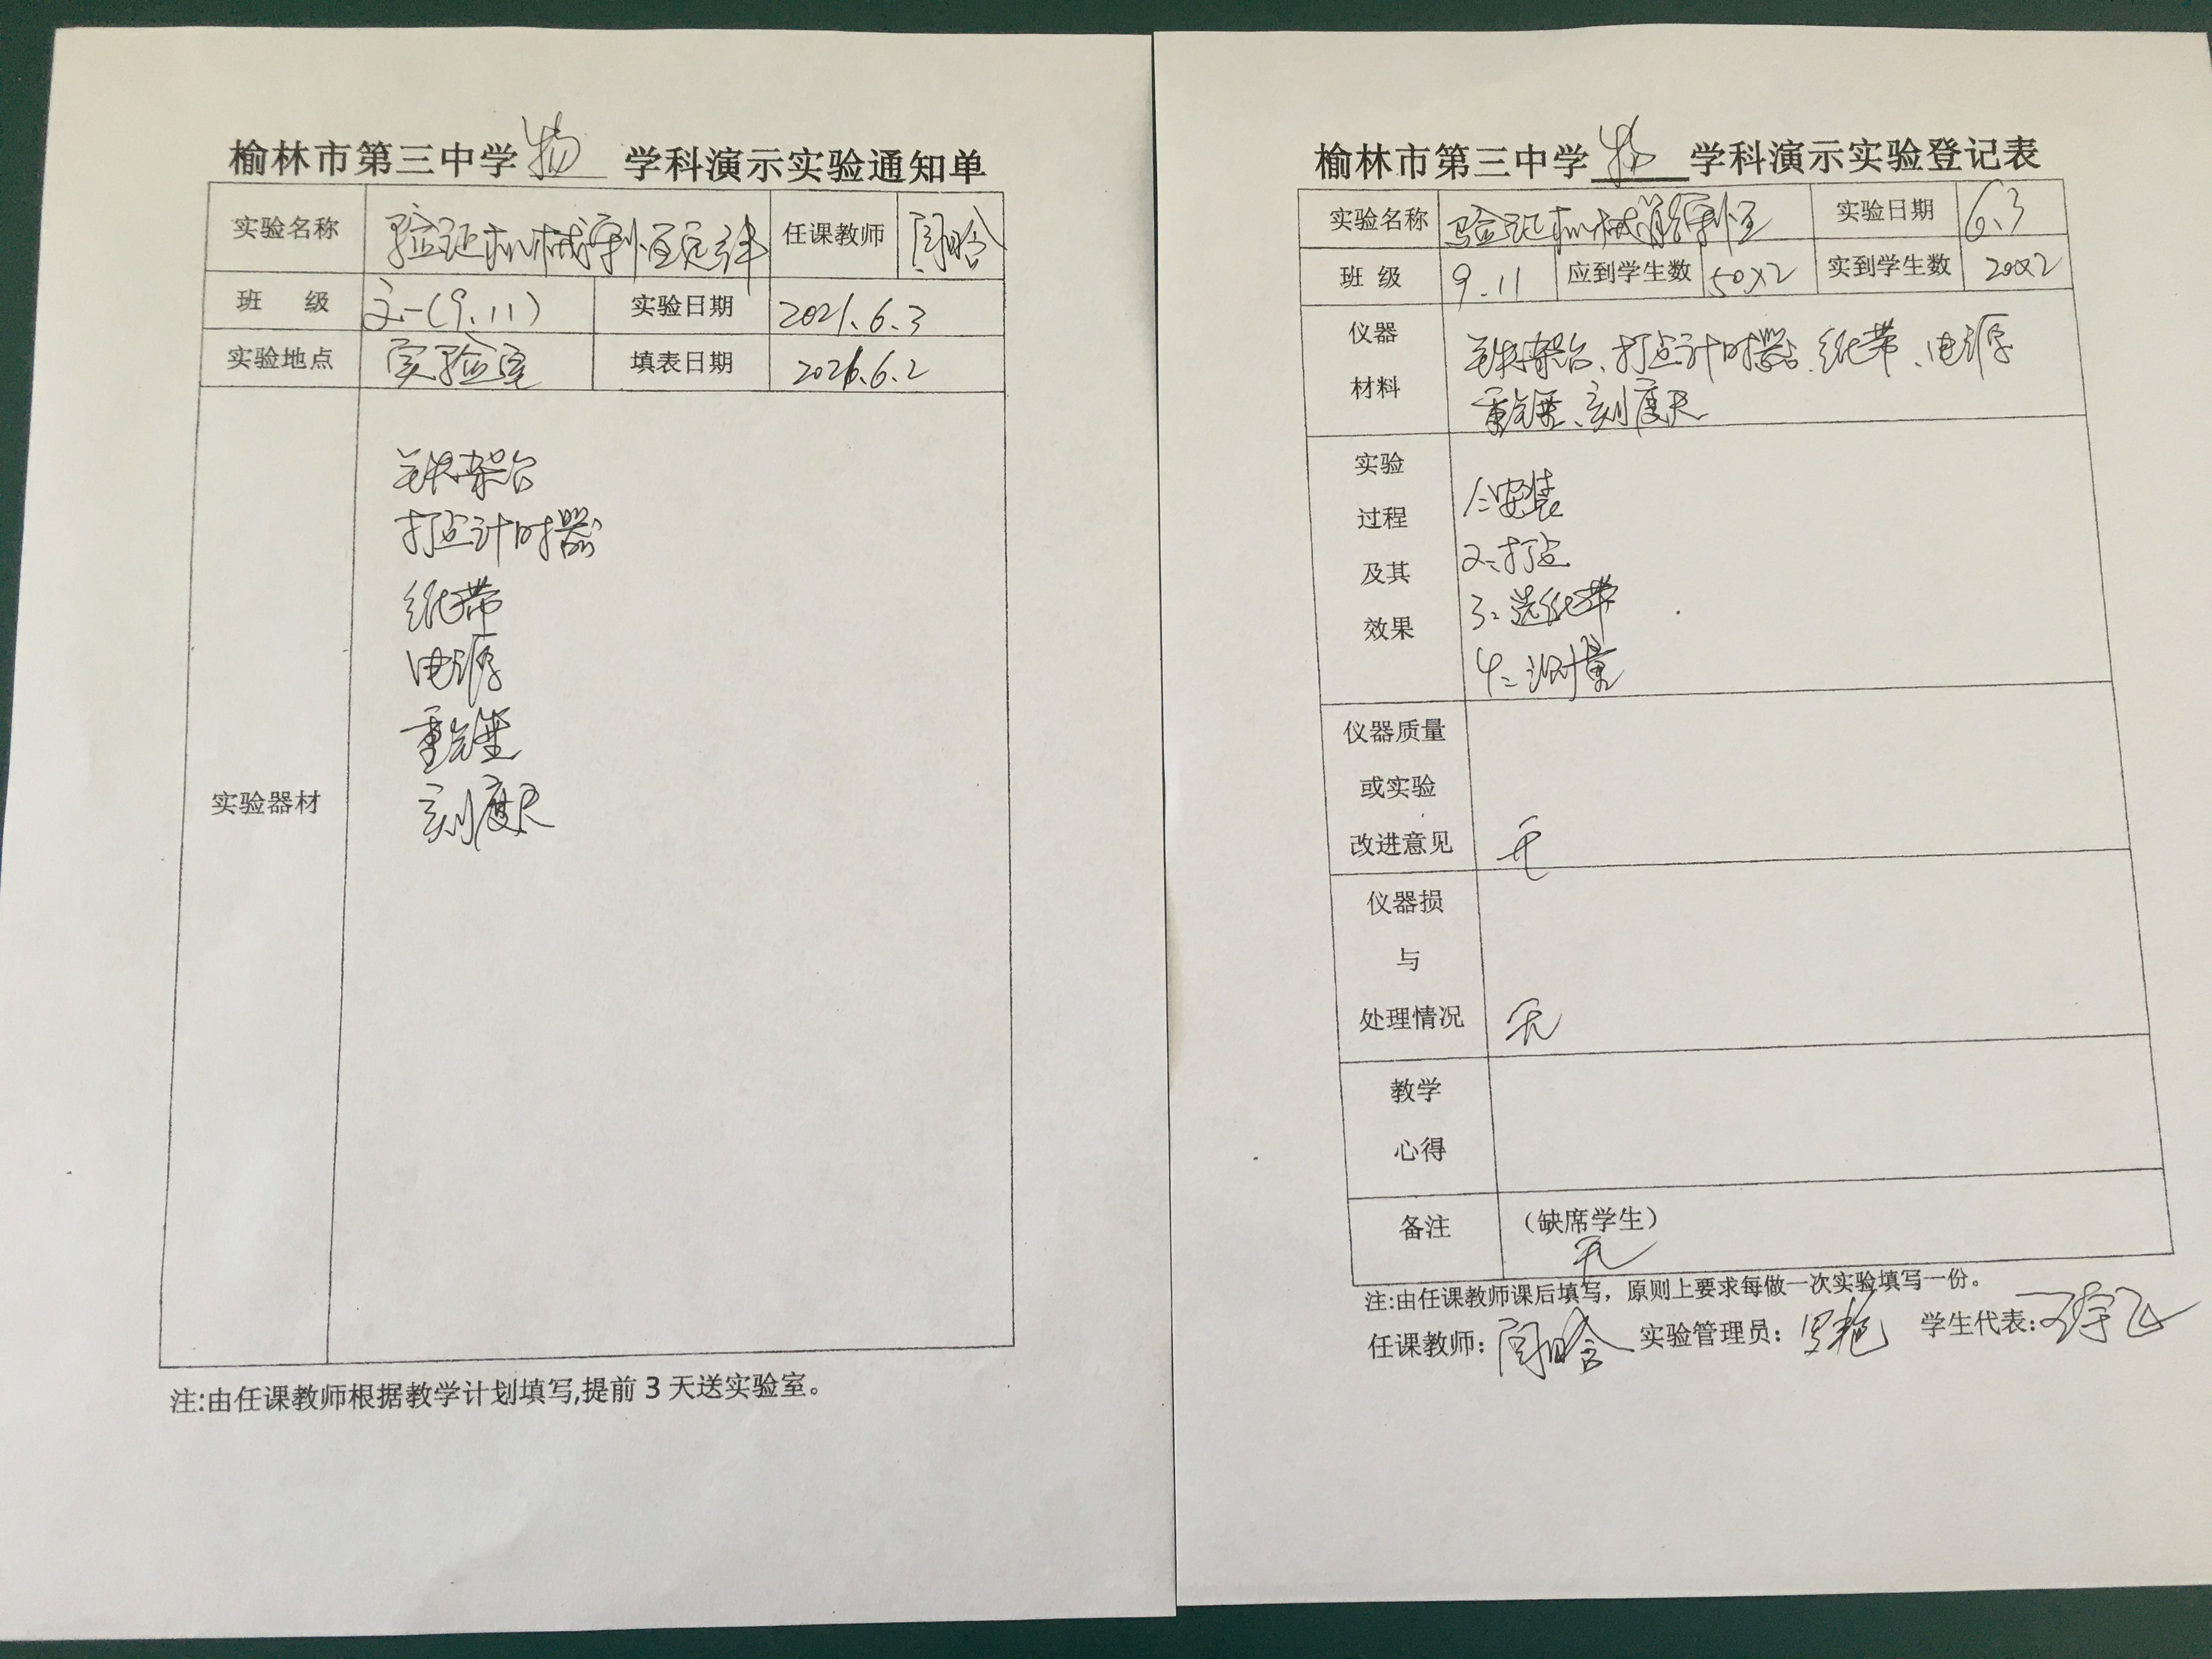 榆林市第三中学 物 学科演示实验通知单
实验名称 验证机械守恒定律 任课教师
班 级 高一(9.11) 实验日期 2021.6.3
实验地点 实验室 填表日期 2021.6.2
实验器材
铁架台
打点计时器
纸带
电源
重锤
刻度尺
注:由任课教师根据教学计划填写,提前3天送实验室。
榆林市第三中学 物 学科演示实验登记表
实验名称 验证机械能守恒 实验日期 6.3
班 级 9.11 应到学生数 50X2 实到学生数 50X2
仪器
材料
铁架台、打点计时器、纸带、电源
重锤、刻度尺
实验
过程
及其
效果
1、安装
2、打点
3、选纸带
4、测量
仪器质量
或实验
改进意见 无
仪器损
与
处理情况 无
教学
心得
备注 (缺席学生)
无
注:由任课教师课后填写，原则上要求每做一次实验填写一份。
任课教师: 实验管理员: 学生代表: